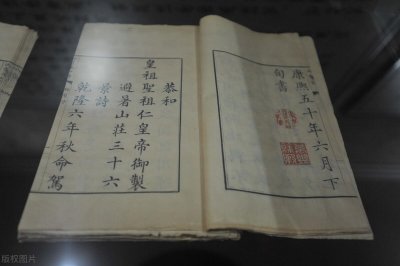 康熙五十年六月下
旬書
恭和
皇祖聖祖仁皇帝御製
避暑山莊三十六
景詩
乾隆六年秋命駕
版权图片